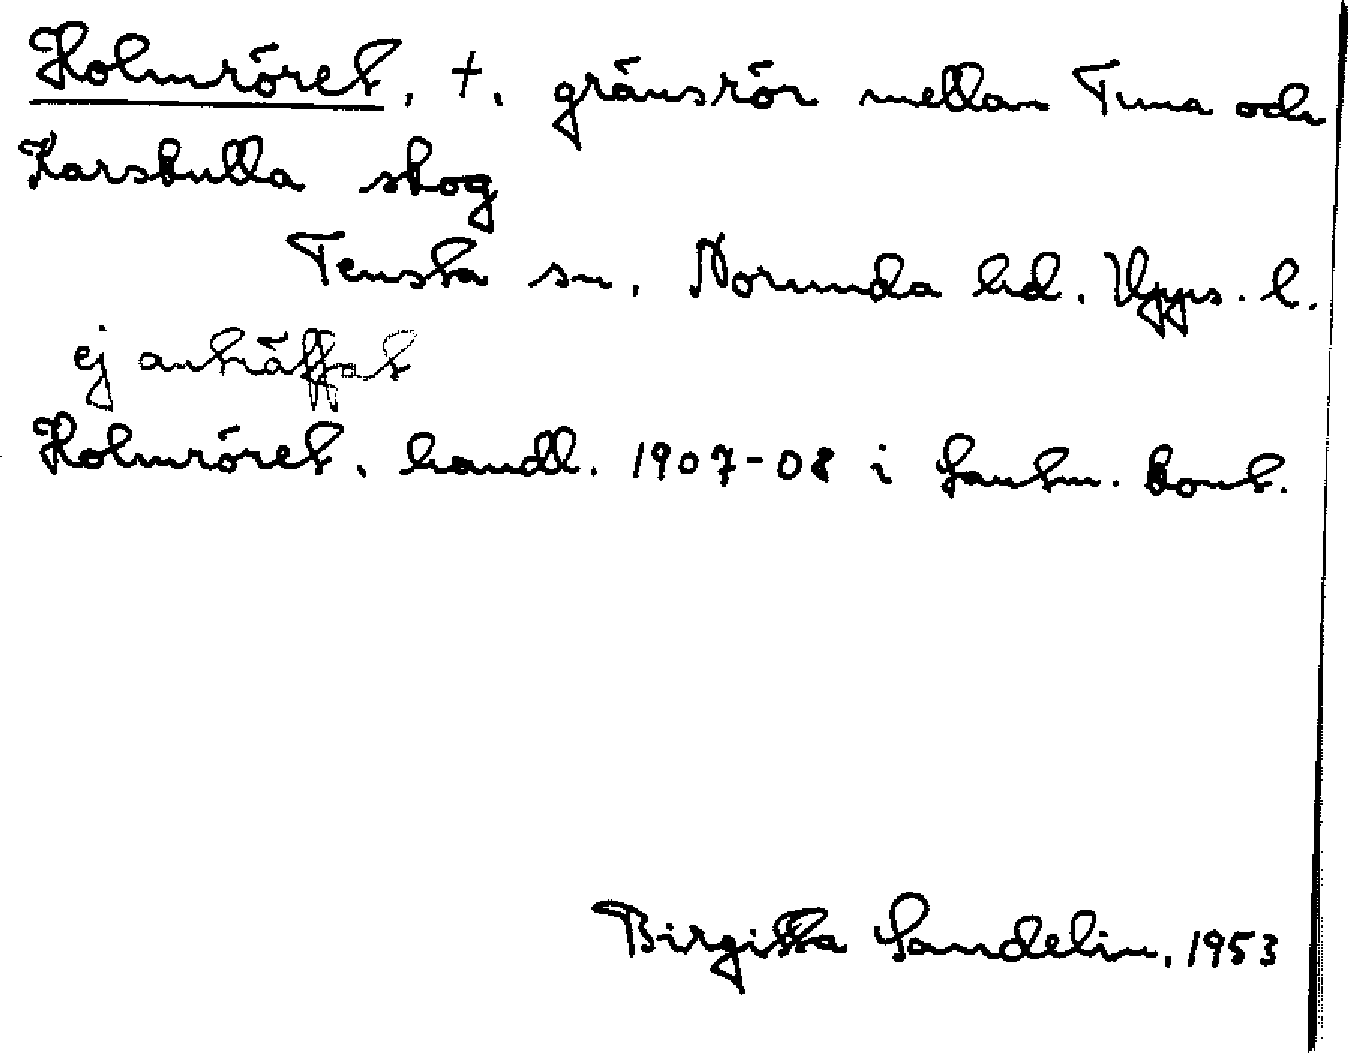 Holmröret, +, gränsrör mellan Tuna och
Karskulla skog
Tensta sn, Norunda hd. Upps. l.
ej anträffat
Holmröret, handl. 1907-08 i Lantm. kont.
Birgitta Sandelin, 1953